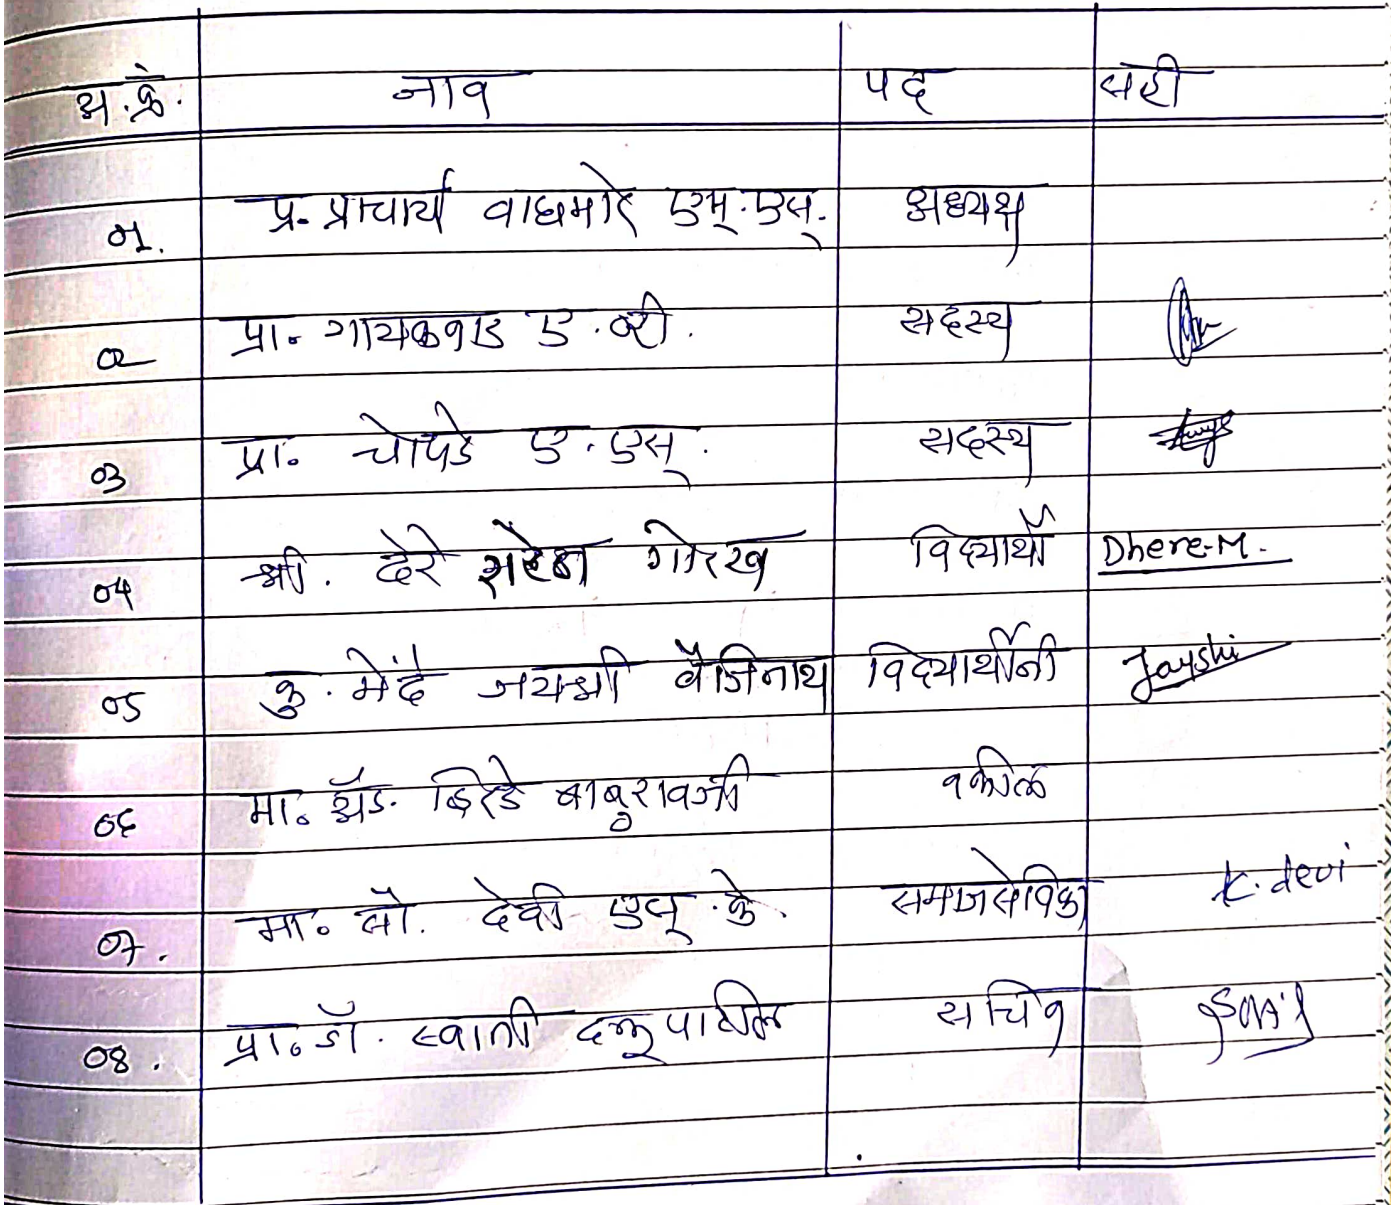 अ.क्रं. नाव पद सही
०१. प्र. प्राचार्य वाघमारे एम्.एस्. अध्यक्ष
०२ प्रा. गायकवाड ए.व्ही. सदस्य
०३ प्रा. चोपडे ए.एस्. सदस्य
०४ श्री. ढेरे गोरख विद्यार्थी Dhere.M.
०५ कु. मेंदे जयश्री वैजिनाथ विद्यार्थीनी Jayshi
०६ मा. अॅड. बाबुरावजी वकील
०७. मा. सौ. देवी एस्.के. समाजसेविका K.devi
०८. प्रा. डॉ. स्वाती पाटील सचिव